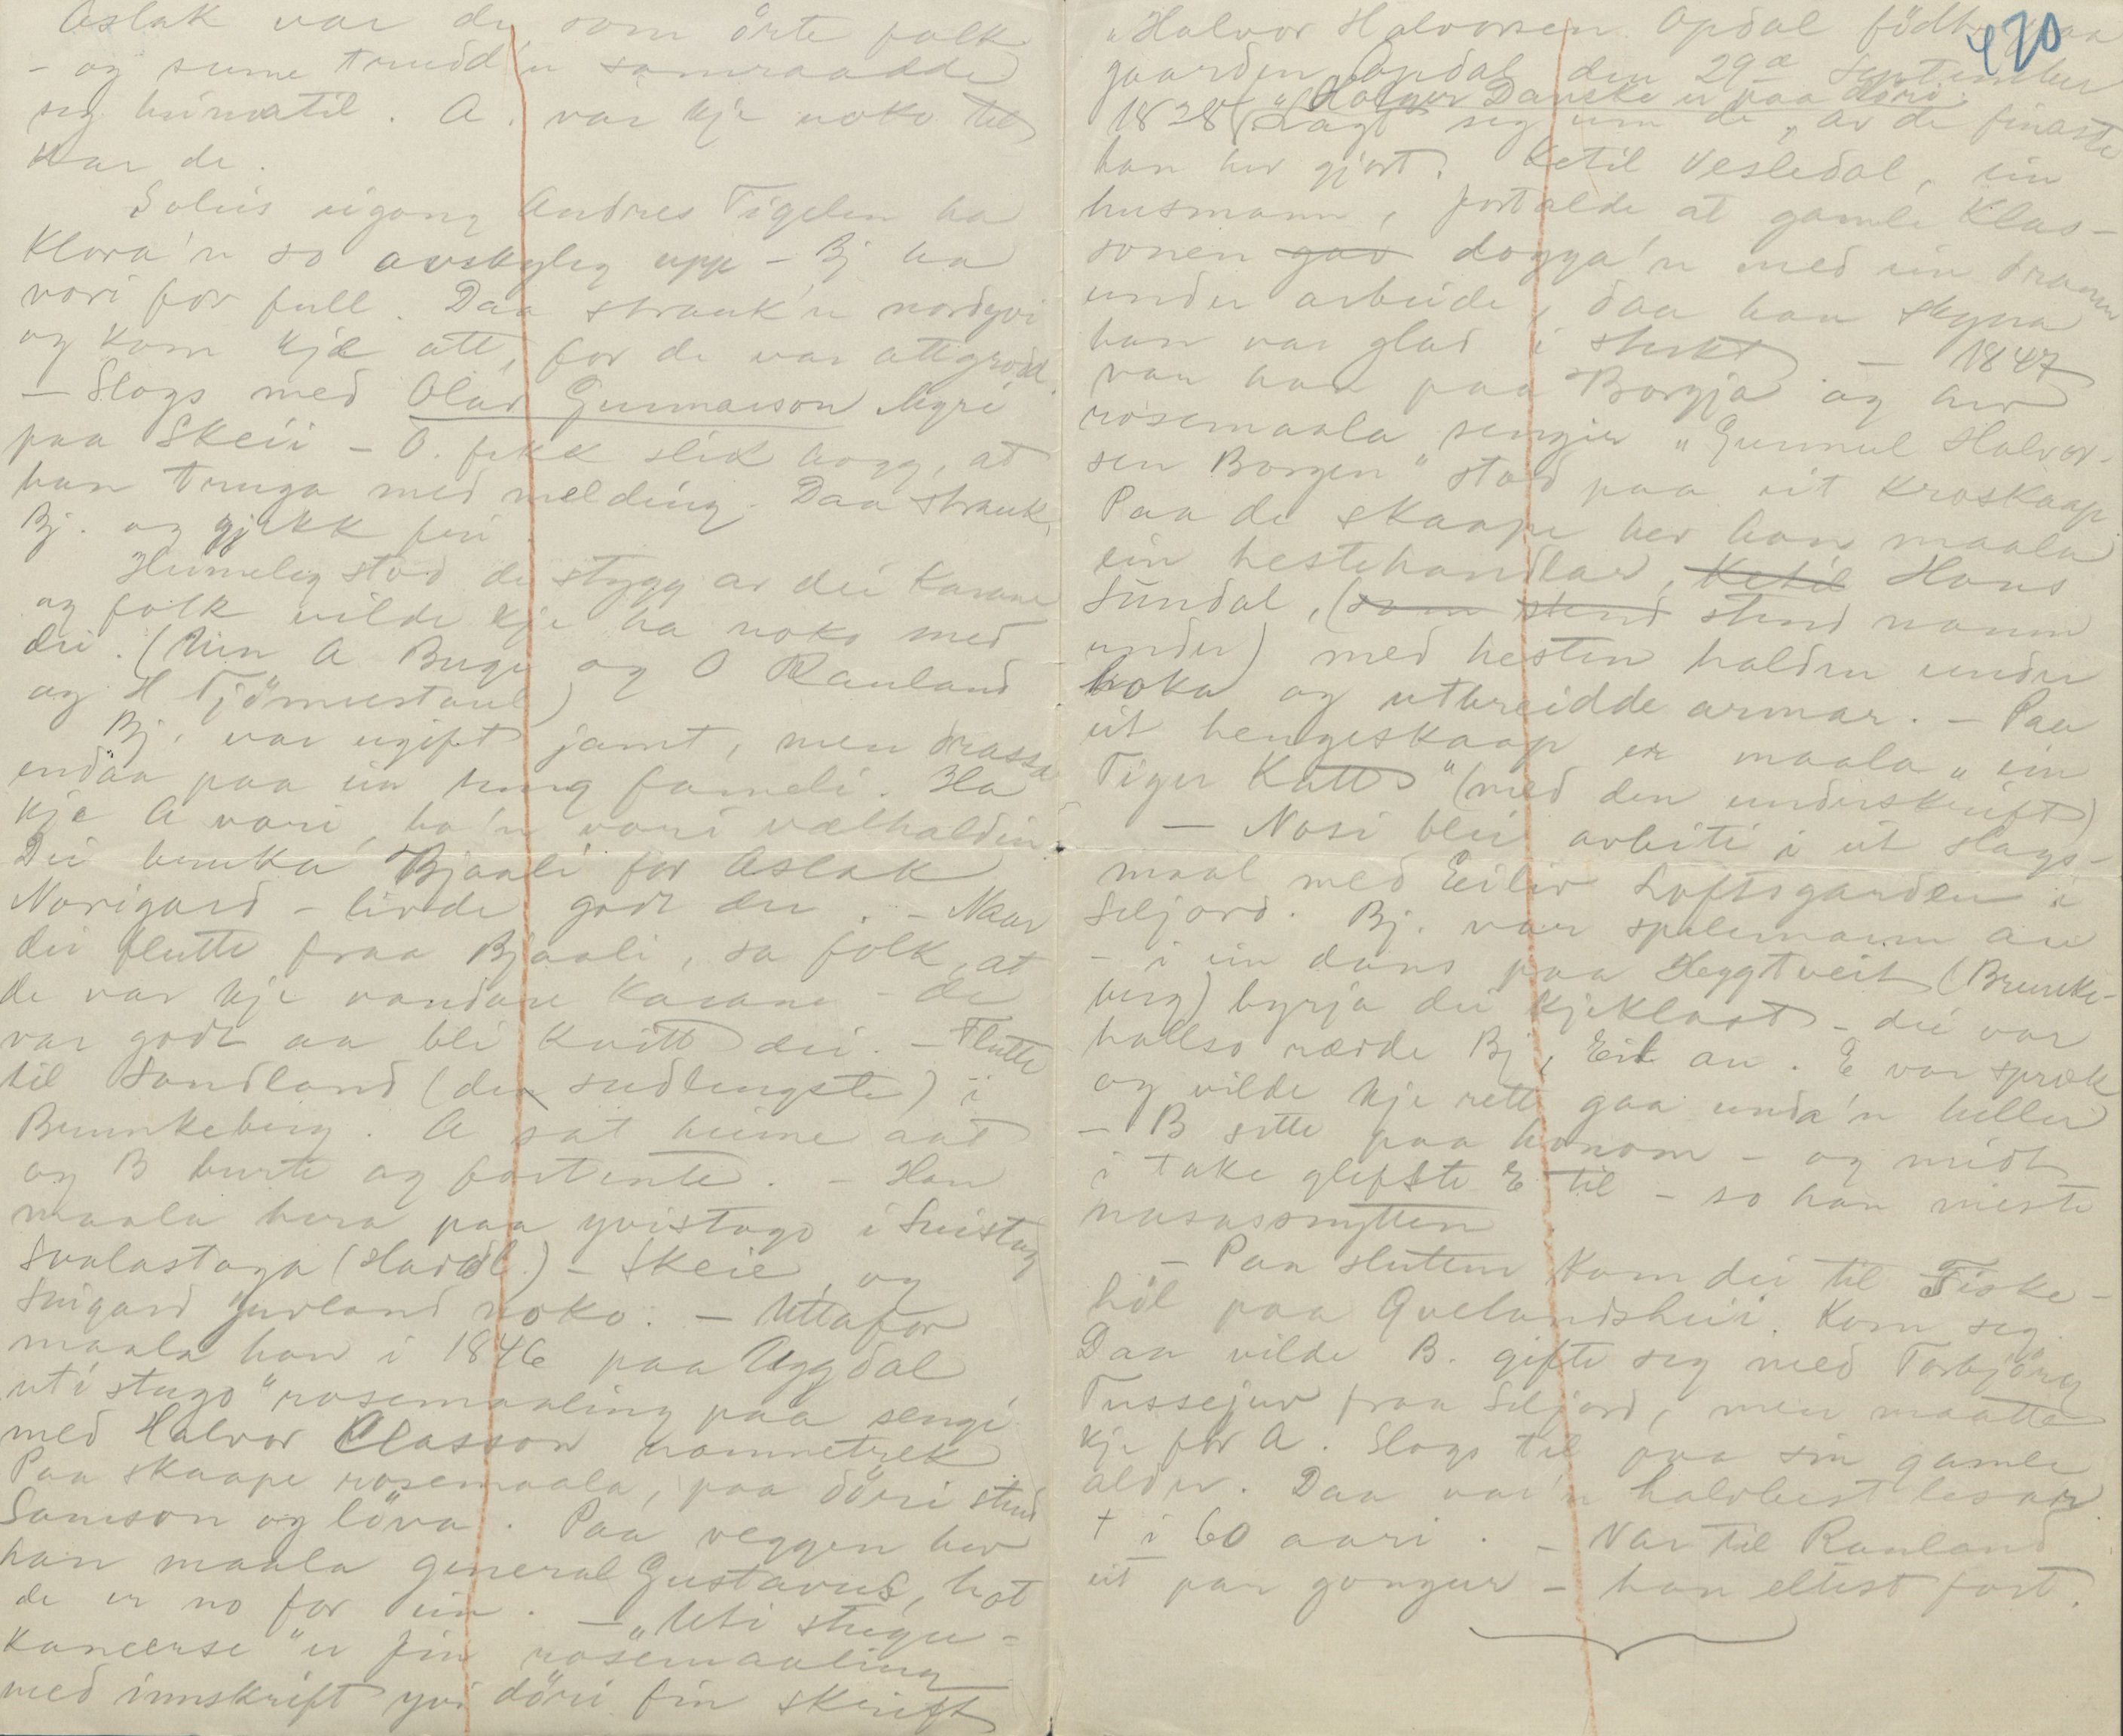 Aslak var de som örte folk
- og sume trudd'n samraadde
seg heimatil. A. var kje noko til
kar de.
Soleis eigong Andres Tigelen ha
klora'n so avskyleg upp - Bj ha
vori for full. Daa strauk'n nordyvi
og kom kje att, for de var attgrodd.
- Slogs med Olav Gunnarson Negri
paa Skeii - O. fekk slik hogg, at
han truga med melding. Daa strauk
Bj. og gjekk fri.
Heimeleg stod de stygg av dei karane
og folk vilde kje ha noko med
dei. (Min A Bugi og O Rauland
og H Tjönnestaul)
Bj. var ugift jamt, men drassa
endaa paa ein tung fameli. Ha
kje A vori, ha'n vori vælhaldin.
Dei bruka Bjaali for Aslak
Norigard - livde godt der. - Naar
dei flutte fraa Bjaali, sa folk, at
de var kje vandare karane - de
var godt aa bli kvitt dei. - Flutte
til Sandland (den sudlengste) i
Brunkeberg. A sat heime aat
og B burte og fortente. - Han
maala bera paa yvistogo i Suistog
Svalastoga (Havrdl.) - Skeie, og
Suigard Jurland noko. - Uttafor
maala han i 1846 paa Uggdal
uti stugo "rosemaaling paa sengi
med Halvor Classon namnetrek
Paa skaape rosemaala, paa döri stend
Samson og löva. Paa veggen hev
han maala general Gustavus, hot
de er no for ein. - "Uti stugu-
kameerse" er fin rosemaaling
med innskrift yvi döri fin skrift
"Halvor Halvorsen Opdal födt paa
420
gaarden Opdal den 29de September
"Holger Danske er paa döri.
1828 (Sagt seg um de, av de finaste
han hev gjort. Ketil Vesledal, ein
husmann, fortalde at gamle Klas-
sonen gav dogga'n med ein dram
under arbeide, daa han skyna
han var glad i sterkt - 1847
var han paa Borgja og hev
rosemaala sengjer "Gunnul Halvor-
sen Borgen" stod paa eit kroskaap
Paa de skaape hev han maala
ein hestehandlar, Ketil Hans
Sundal, (som stend stend namn
under) med hesten halden under
hoka og utbreidde armar. - Paa
eit hengeskaap er maala "ein
Tiger Katt" (med den underskrift)
- Nosi blei avbiti i eit slags-
maal med Eiliv Loftsgarden i
Seljord. Bj. var spelemann au
- i ein dans paa Heggtveit (Brunke-
berg) byrja dei kjeklast - dei var
hallso rædde Bj, Eil au. E var spræk
og vilde kje rett gaa unda'n heller
- B sette paa honom - og midt
i take glefste E til - so han miste
nasasnytten
- Paa slutten kom dei til Fiske-
höl paa Qvelandsheii. Kom seg.
Daa vilde B. gifte seg med Torbjörg
Tussejuv fraa Seljord, men maatte
kje for A. Slogs til paa sin gamle
alder. Daa var'n halvbest lesar
† i 60 aari. - Var til Rauland
eit par gongur - han eltest fort.